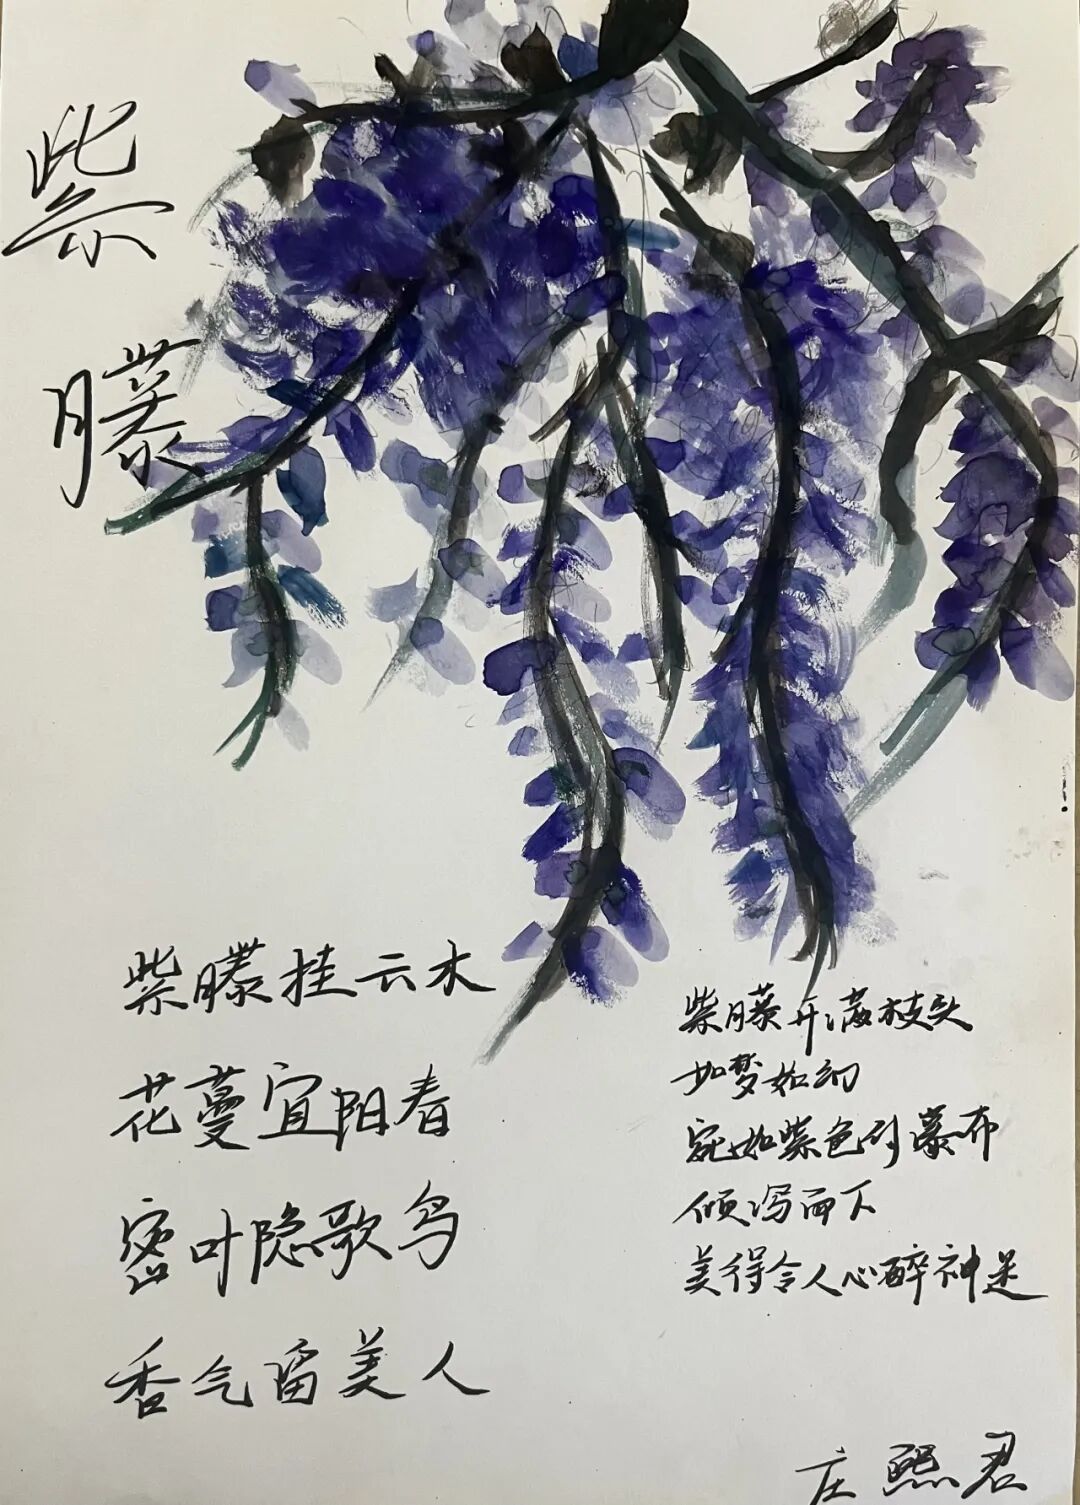 紫藤
紫藤挂云木
花蔓宜阳春
密叶隐歌鸟
香气留美人
紫藤开满枝头
如梦如幻
宛如紫色的瀑布
倾泻而下
美得令人心醉神迷
庄熙君